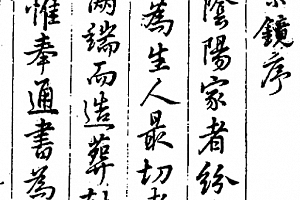 鏡序
陰陽家者紛
為生人最切
兩端而造葬
惟奉通書為